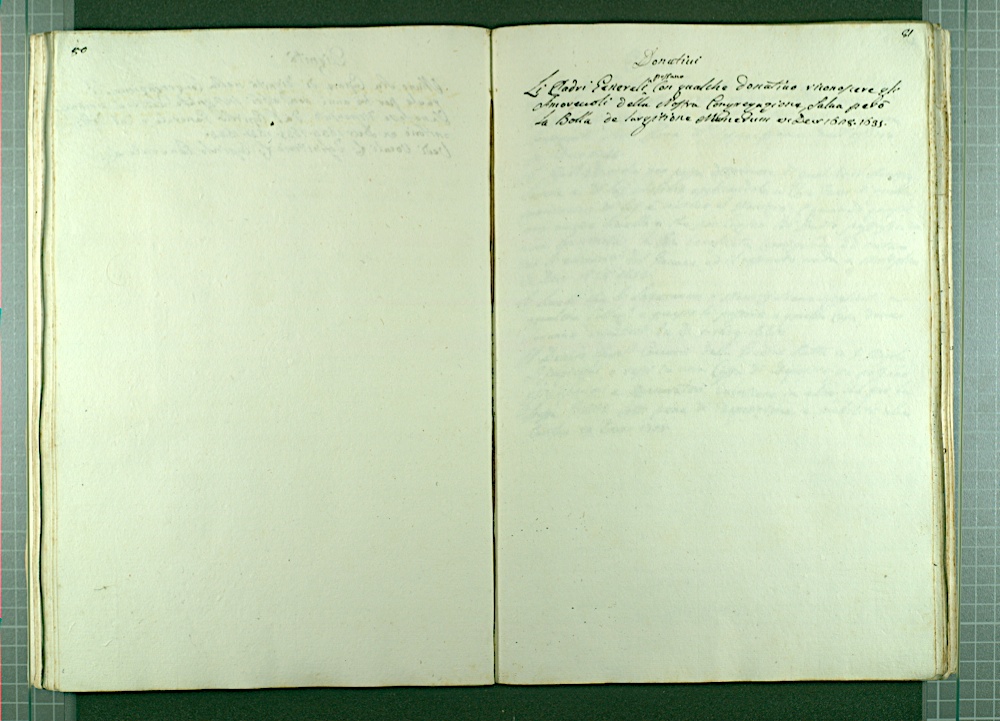 50
81
Donativi
possano
Li Padri Generali con qualche donativo riconoscere gl'
Amorevoli della Nostra Congregazione, salva però
la Bolla de largitione Munerum ex Decr. 1608. 1631.